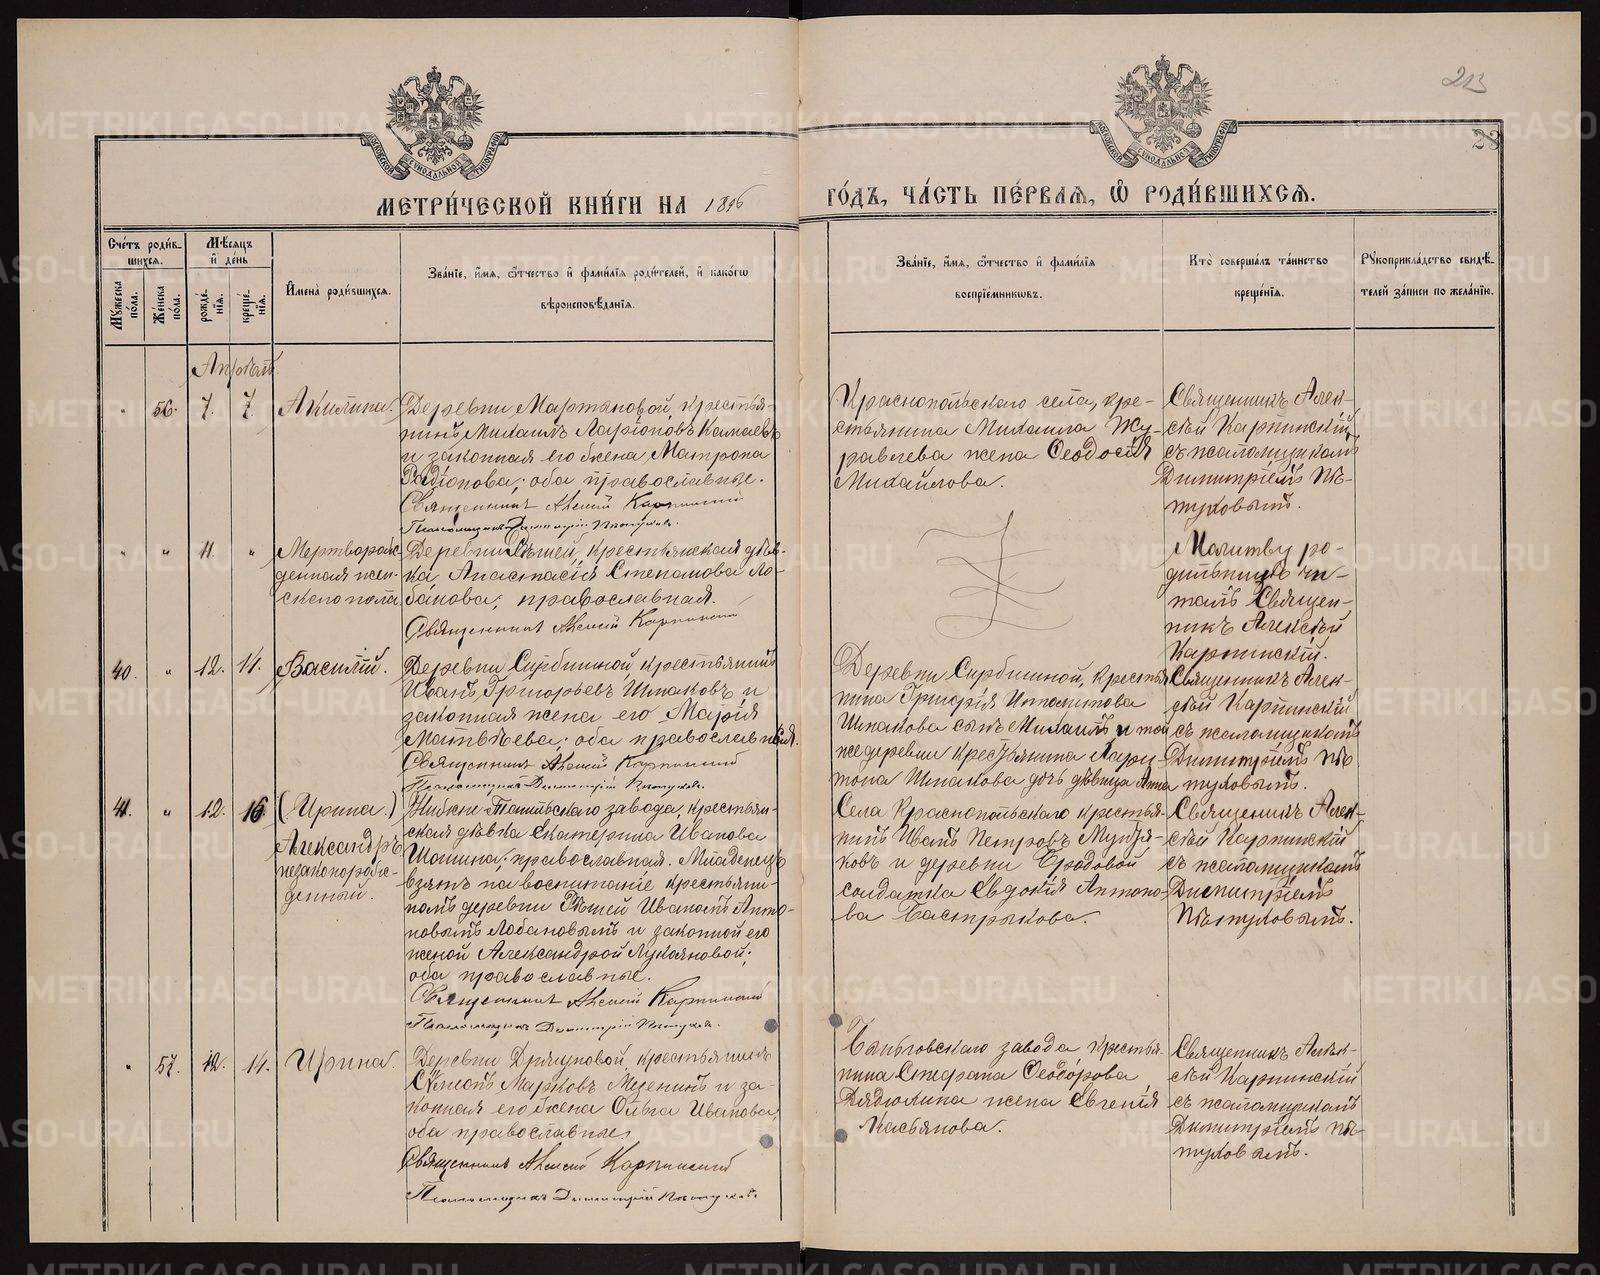 213
23
МЕТРИ́ЧЕСКОЙ КНИ́ГИ НА 1896
ГО́ДЪ, ЧА́СТЬ ПЕ́РВАѦ, Ѡ҆ РОДИ́ВШИХСѦ.
Сче́тъ роди́в-
шихсѧ.
Мꙋ́жеска по́ла.
Же́нска по́ла.
Мѣ́сѧцъ и҆ де́нь
рожде́нїѧ.
креще́нїѧ.
И҆мена̀ роди́вшихсѧ.
Зва́нїе, и҆́мѧ, ѻ҆́тчество и҆ фами́лїѧ роди́телей, и҆ како́гѡ
вѣроисповѣ́данїѧ.
Зва́нїе, и҆́мѧ, ѻ҆́тчество и҆ фами́лїѧ
воспрїе́мникѡвъ.
Кто̀ соверша́лъ та́инство
креще́нїѧ.
Рꙋкоприкла́дство свидѣ́-
телей за́писи по жела́нїю.
Апрѣль
" 56. 7. 7. Акилина.
Деревни Мартяновой, крестья-
нинъ Михаилъ Ларіоновъ
и законная его жена Матрона
Радіонова; оба православные.
Священникъ Алексій Карпинскій
Псаломщикъ Димитрій Пѣтуховъ.
Краснопольскаго села, кре-
стьянина Михаила Жу-
равлева жена Ѳеодосія
Михайлова.
Священникъ Алек-
сѣй Карпинскій
съ псаломщикомъ
Димитріемъ Пѣ-
туховымъ.
" " 11. " Мертворож-
денная жен-
скаго пола
крестьянская дѣв-
ка Анастасія Степанова Ло-
банова; православная.
Священникъ Алексій Карпинскій
Молитву ро-
дильницѣ чи-
талъ Священ-
никъ Алексѣй
Карпинскій.
40. " 12. 14. Василій.
Деревни Сирбишной, крестьянинъ
Иванъ Григорьевъ Шмаковъ и
законная жена его Марія
Матвѣева; оба православныя.
Священникъ Алексій Карпинскій
Псаломщикъ Димитрій Пѣтуховъ.
Деревни Сирбишной, крестья
нина Григорія Ипполитова
Шмакова сынъ Михаилъ и той
же деревни крестьянина Хари-
тона Шмакова дочь дѣвица Анна
Священникъ Алек-
сѣй Карпинскій
съ псаломщикомъ
Димитріемъ Пѣ
туховымъ.
41. " 12. 16. (Ирина.)
Александръ
незаконорож-
денный.
Нижне-Тагильскаго завода, крестьян-
ская дѣвка Екатерина Иванова
Шошина, православная. Младенецъ
взятъ на воспитаніе крестьяни-
номъ деревни Иваномъ Анто-
новымъ Лобановымъ и законной его
женой Александрой Лукояновой;
оба православные.
Священникъ Алексій Карпинскій
Псаломщикъ Димитрій Пѣтуховъ.
Села Краснопольскаго крестья-
нинъ Иванъ Петровъ
ковъ и деревни Бродовой
солдатка Евдокія Антоно-
ва Бастрыкова.
Священникъ Алек-
сѣй Карпинскій
съ псаломщикомъ
Димитріемъ
Пѣтуховымъ.
" 57. 12. 14. Ирина.
Деревни Дрягуновой, крестьянинъ
Симонъ Марковъ Мезенинъ и за-
конная его жена Ольга Иванова,
оба православные.
Священникъ Алексій Карпинскій
Псаломщикъ Димитрій Пѣтуховъ
завода крестья-
нина Стефана Ѳеодорова
Дядюхина жена Евгенія
Касьянова.
Священникъ Алек-
сѣй Карпинскій
съ псаломщикомъ
Димитріемъ Пѣ-
туховымъ.
METRIKI.GASO-URAL.RU